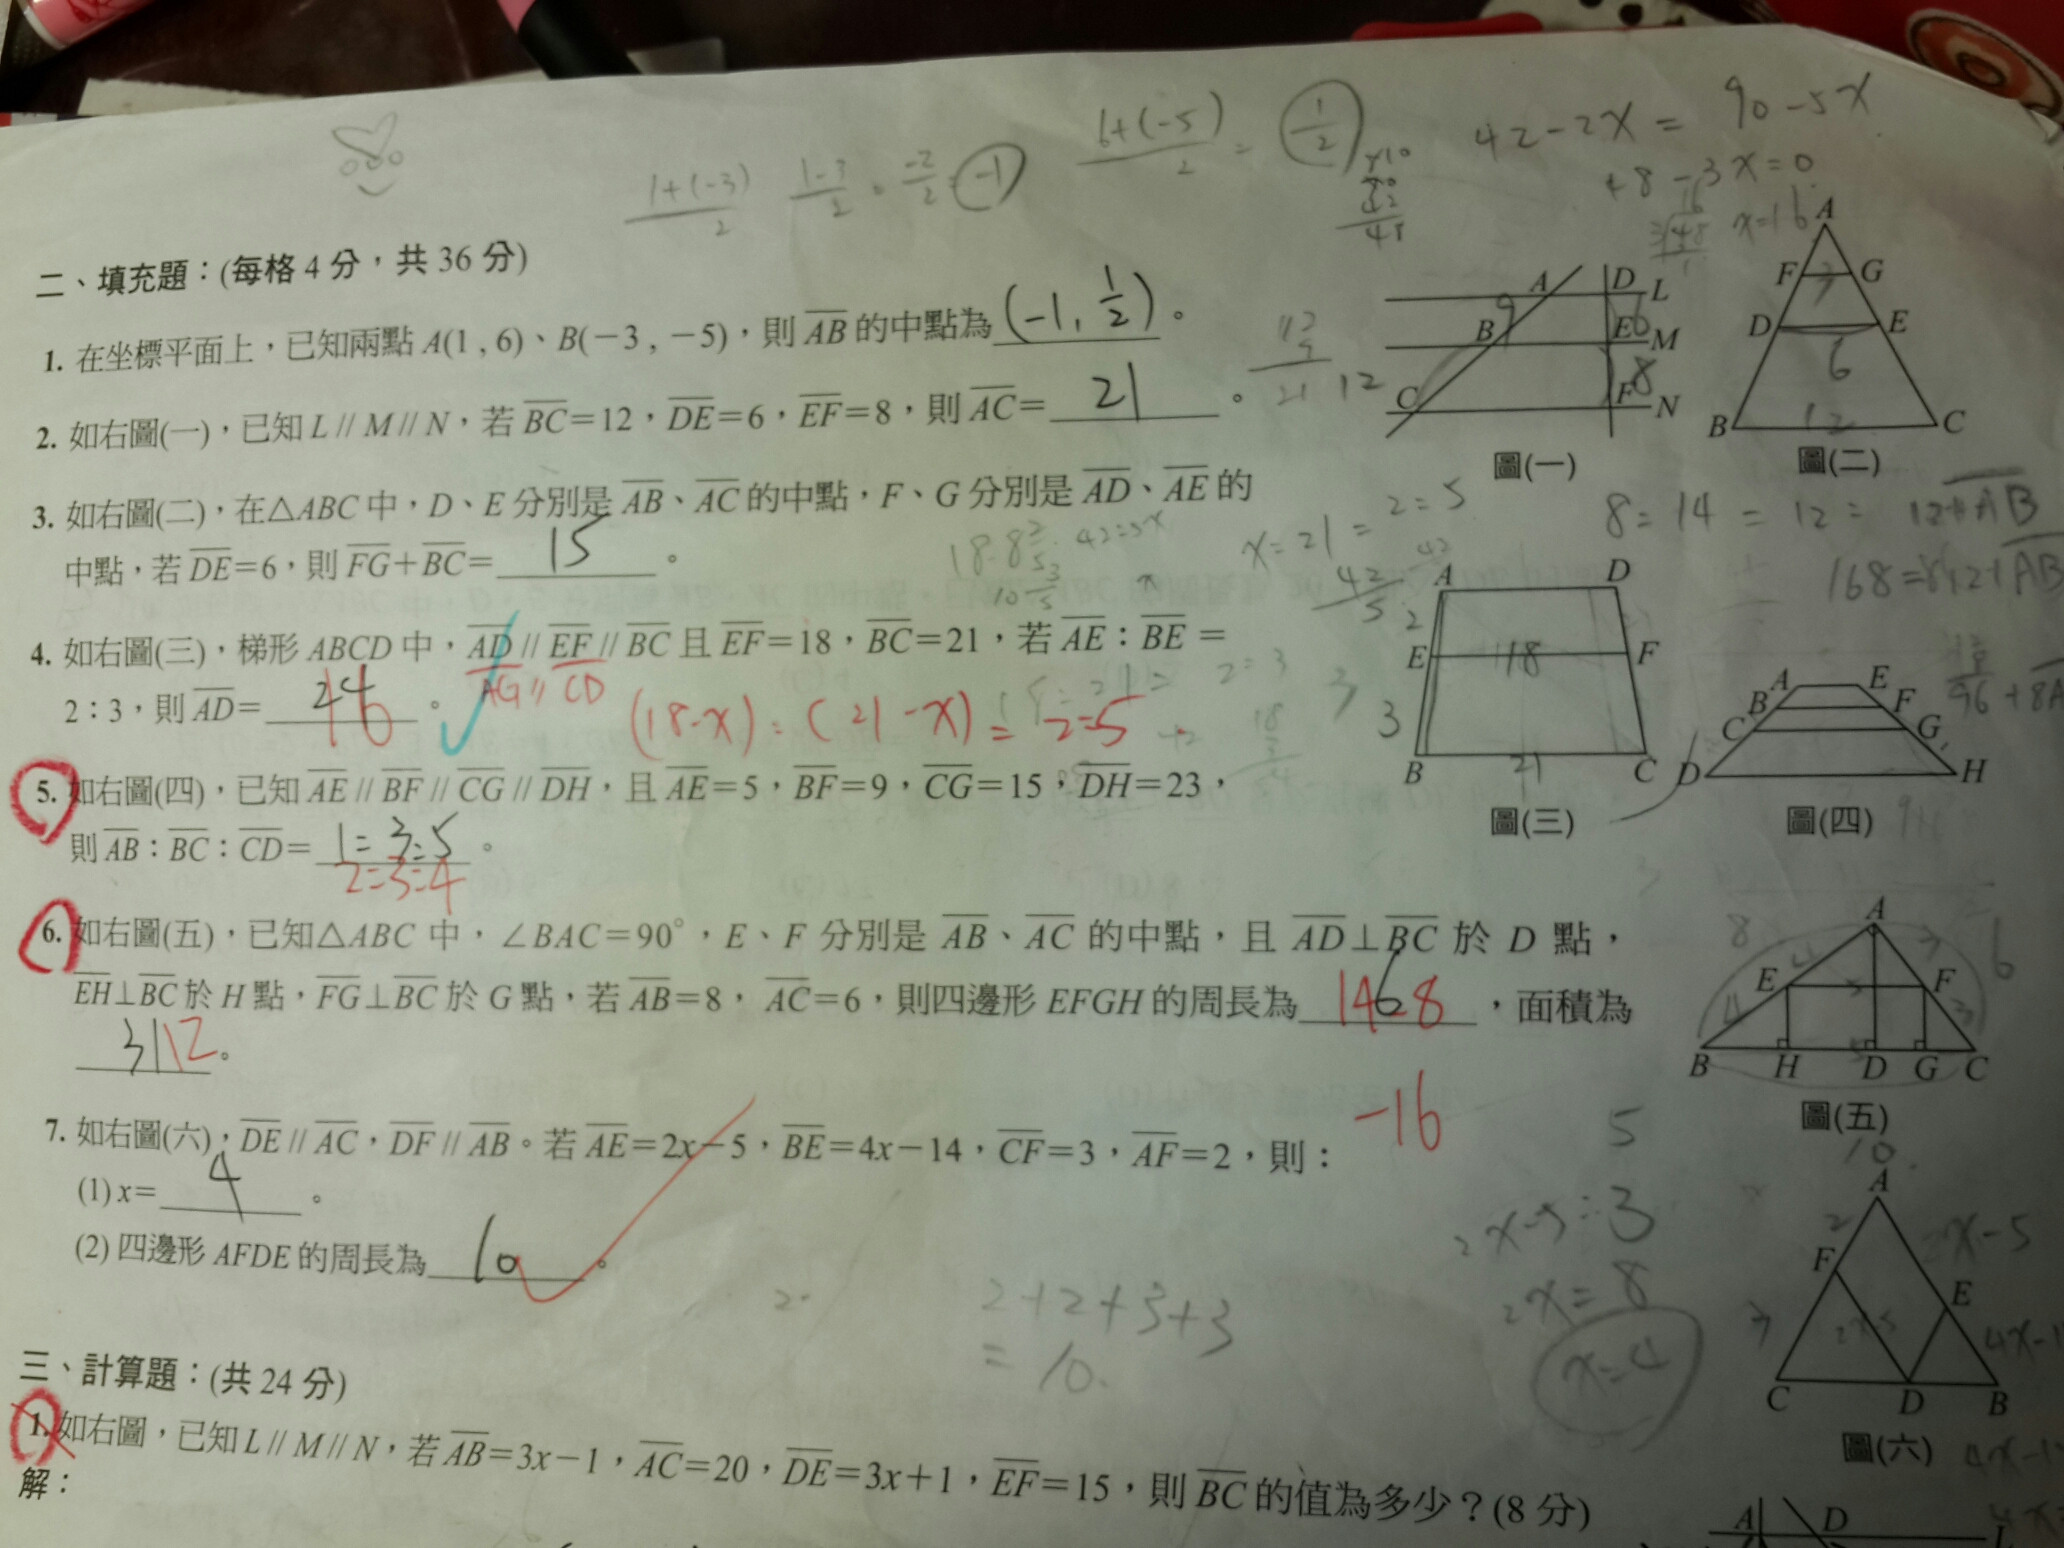 1+(-3)/2
1-3/2 = -2/2 = -1
6+(-5)/2 = 1/2
42-2x = 90-5x
48-3x=0
x=16
二、填充題：(每格 4 分，共 36 分)
1. 在坐標平面上，已知兩點 A(1 , 6)、B(−3 , −5)，則 AB 的中點為 (-1, 1/2)。
2. 如右圖(一)，已知 L // M // N，若 BC=12，DE=6，EF=8，則 AC= 21 。
3. 如右圖(二)，在△ABC 中，D、E 分別是 AB、AC 的中點，F、G 分別是 AD、AE 的
中點，若 DE=6，則 FG+BC= 15 。
4. 如右圖(三)，梯形 ABCD 中，AD // EF // BC 且 EF=18，BC=21，若 AE：BE=
2：3，則 AD= 16 。
AG // CD
(18-x) : (21-x) = 2:5
5. 如右圖(四)，已知 AE // BF // CG // DH，且 AE=5，BF=9，CG=15，DH=23，
則 AB：BC：CD= 1:3:5 。
2:3:4
6. 如右圖(五)，已知△ABC 中，∠BAC=90°，E、F 分別是 AB、AC 的中點，且 AD⊥BC 於 D 點，
EH⊥BC 於 H 點，FG⊥BC 於 G 點，若 AB=8， AC=6，則四邊形 EFGH 的周長為 14.8 ，面積為
12 。
-16
7. 如右圖(六)，DE // AC，DF // AB。若 AE=2x−5，BE=4x−14，CF=3，AF=2，則：
(1) x= 4 。
(2) 四邊形 AFDE 的周長為 10 。
2+2+3+3
= 10
2x-5=3
2x=8
x=4
三、計算題：(共 24 分)
1. 如右圖，已知 L // M // N，若 AB=3x−1，AC=20，DE=3x+1，EF=15，則 BC 的值為多少？(8 分)
解：
A D L
B E M
C F N
9 6 8 12
圖(一)
A
F G
D E
6
B 12 C
圖(二)
8 = 14 = 12 = 12+AB
A D
2
E 18 F
3
B 21 C
圖(三)
A E
B F
C G
D H
圖(四)
A
8 6
E F
B H D G C
圖(五)
10
A
2 2x-5
F
E
C D B
圖(六)
A D L